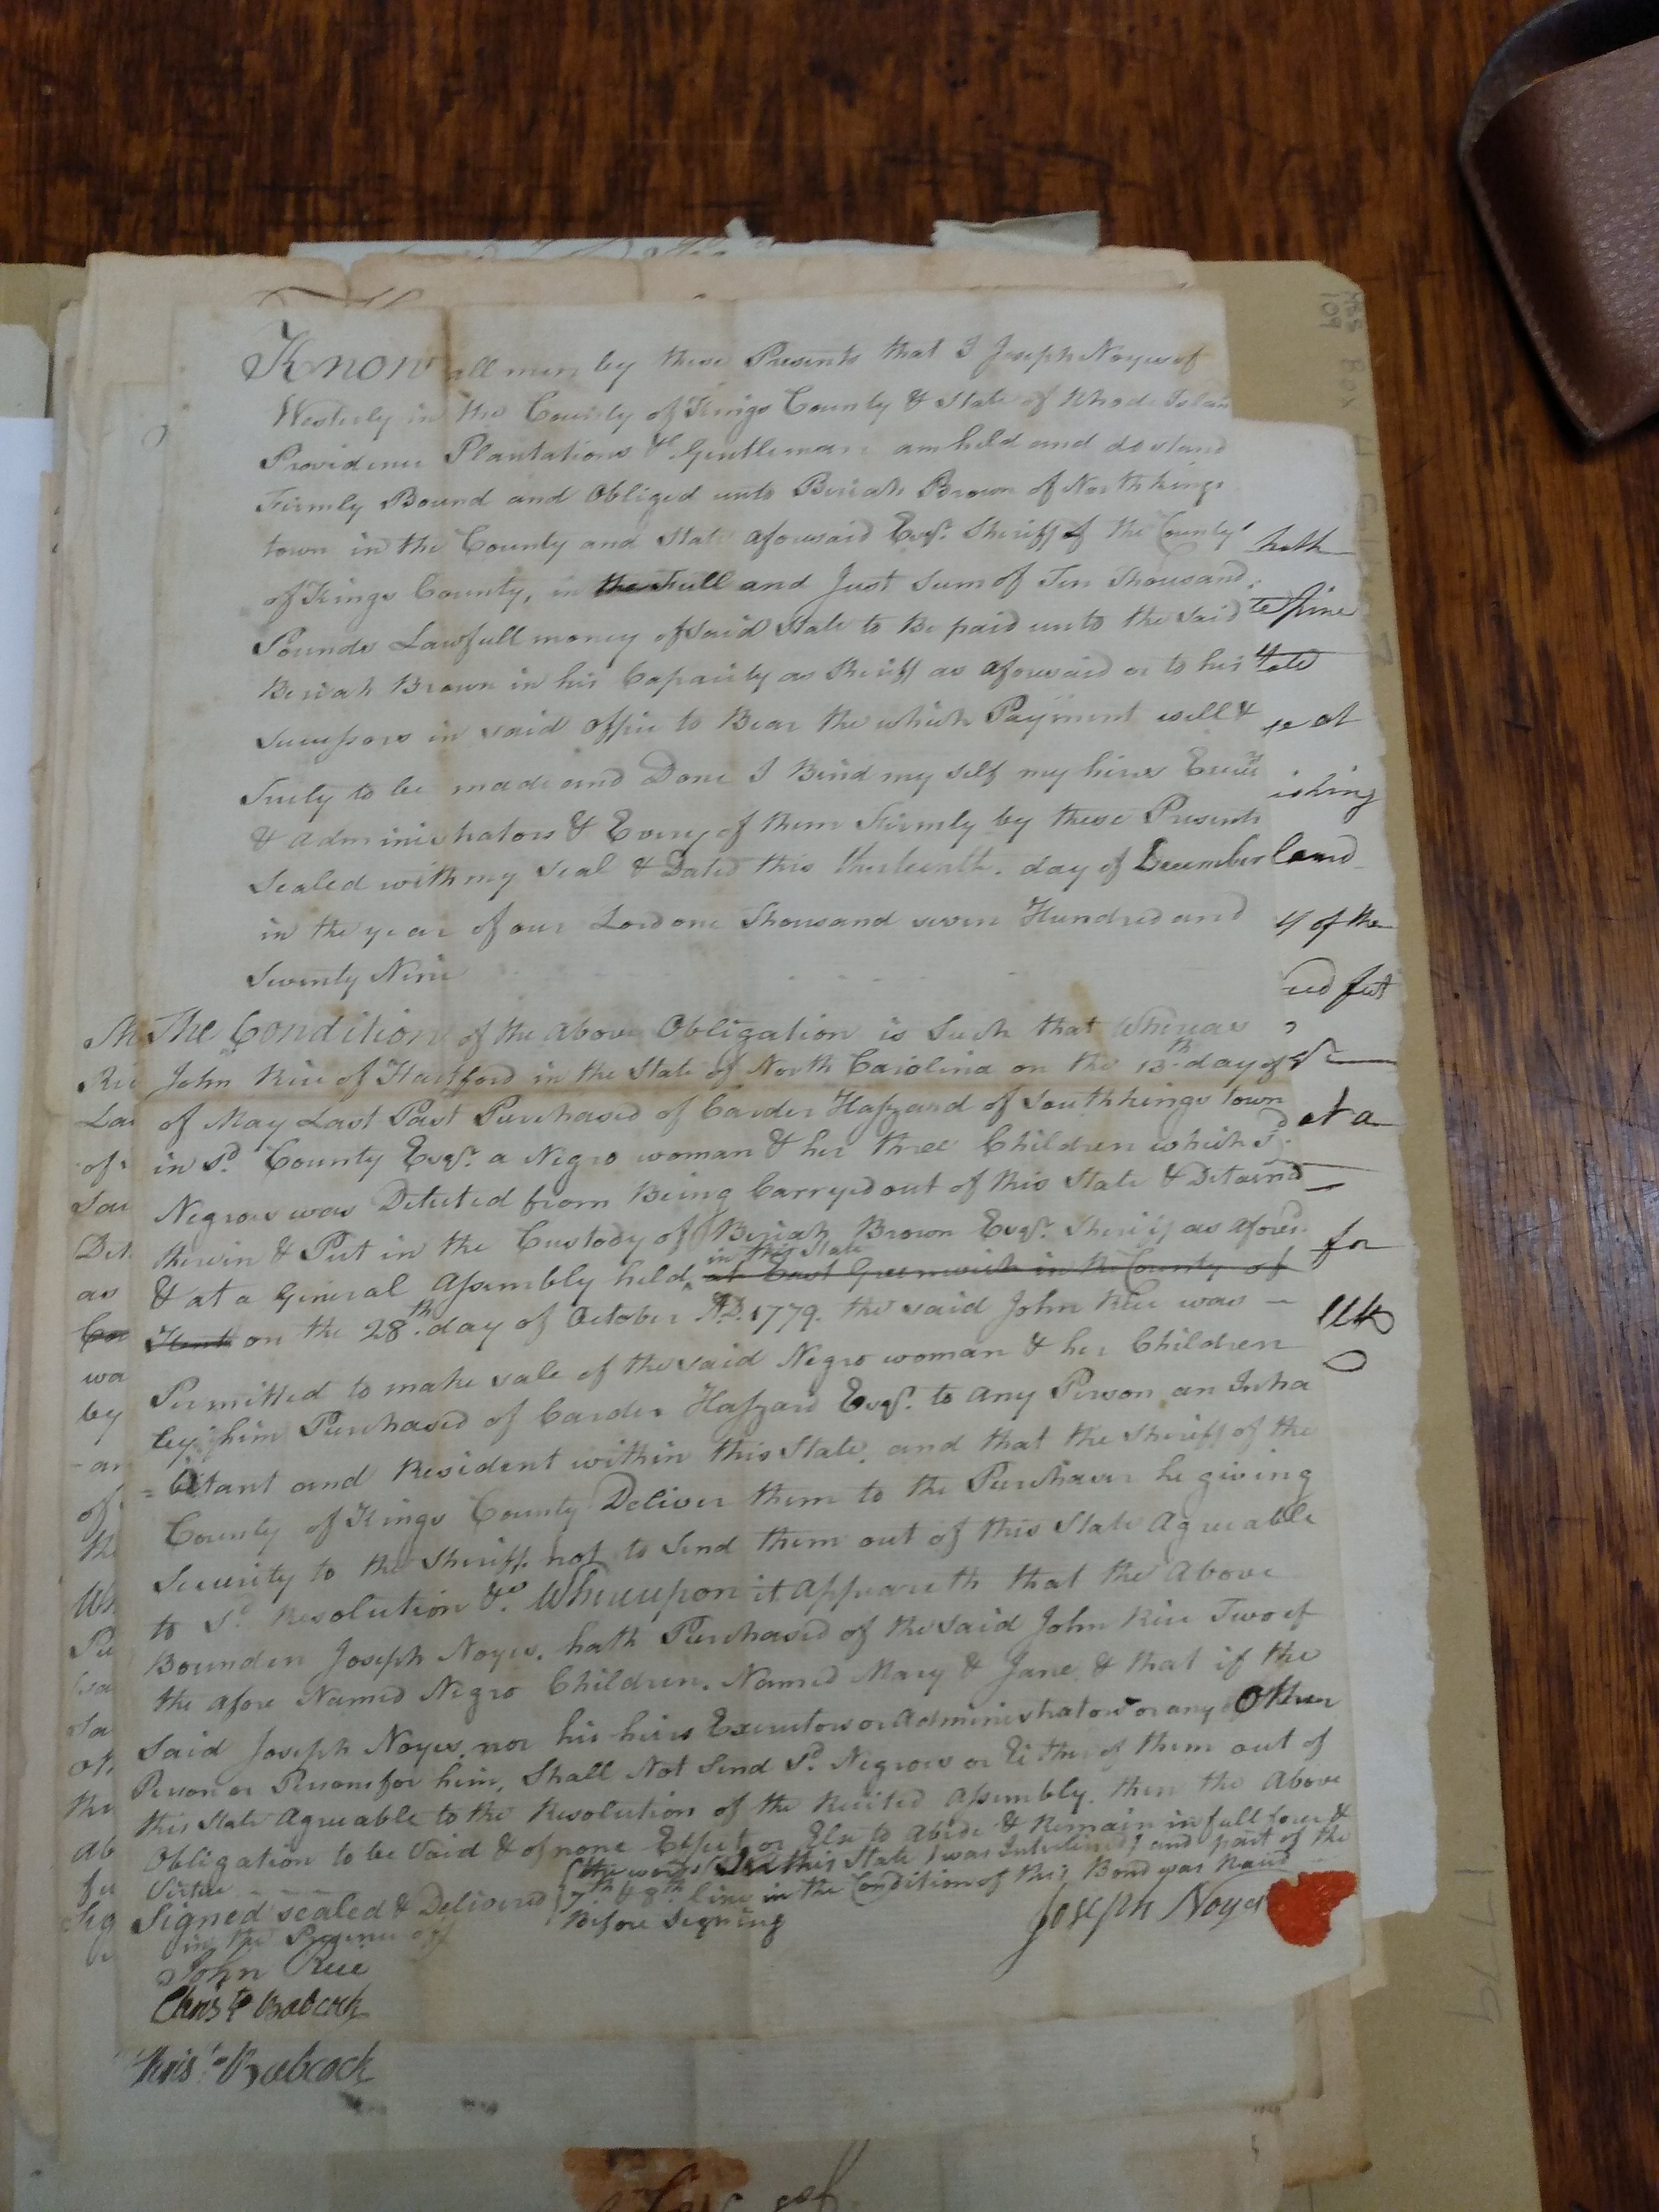 Know all men by these Presents that I Joseph Noyes of
Westerly in the County of Kings County & State of Rhode Islan
Providence Plantations &c Gentleman am held and do stand
Firmly Bound and Obliged unto Beriah Brown of North kings
town in the County and State aforesaid Esqr. Sheriff of the County
of Kings County, in the Full and Just Sum of Ten Thousand
Pounds Lawfull money of said State to Be paid unto the said
Beriah Brown in his Capacity as Sheriff as aforesaid or to his
Successors in said Office to Bear the which Payment well &
Truly to be made and Done I Bind my self my heirs Execurs
& administrators & Every of them Firmly by these Presents
Sealed with my Seal & Dated this thirteenth. day of December
in the year of our Lord one Thousand seven Hundred and
Seventy Nine
The Condition of the Above Obligation is Such that Whereas
John Rice of Hartford in the State of North Carolina on the 13th day of
of May Last Past Purchased of Carder Hafzard of South kings town
in sd. County Esqr. a Negro woman & her three Children which sd.
Negroes was Detected from Being Carryed out of this State & Detaind
therein & Put in the Custody of Beriah Brown Esqr. Sheriff as aforesd.
in this State
& at a General Assembly held at East Greenwich in the County of
Kent on the 28th. day of October AD. 1779. the said John Rice was –
Permitted to make sale of the said Negro woman & her Children
by him Purchased of Carder Hafzard Esqr. to any Person an Inha
= bitant and Resident within this State, and that the Sheriff of the
County of Kings County Deliver them to the Purchaser he giving
Security to the Sheriff. not to Send them out of this State Agreeable
to sd. Resolution &c. Whereupon it appeareth that the Above
Bounden Joseph Noyes. hath Purchased of the said John Rice Two of
the afore Named Negro Children. Named Mary & Jane & that if the
Said Joseph Noyes. nor his heirs Executors or Administrators or any Other
Person or Persons for him, Shall Not Send sd. Negroes or Either of them out of
this State Agreeable to the Resolution of the Recited Assembly. then the Above
Obligation to be Void & of none Effect or Else to Abide & Remain in full force &
Virtue
(the words (in this State) was Interlined) and part of the
7th & 8th. line in the Condition of this Bond was Razed
Before Signing
Signed sealed & Delivered
in the Presence of
Joseph Noyes
John Rice
Christr Babcock
Chrisr Babcock
hath
te fine
State
ishing
land
y of the
for
1779
Box